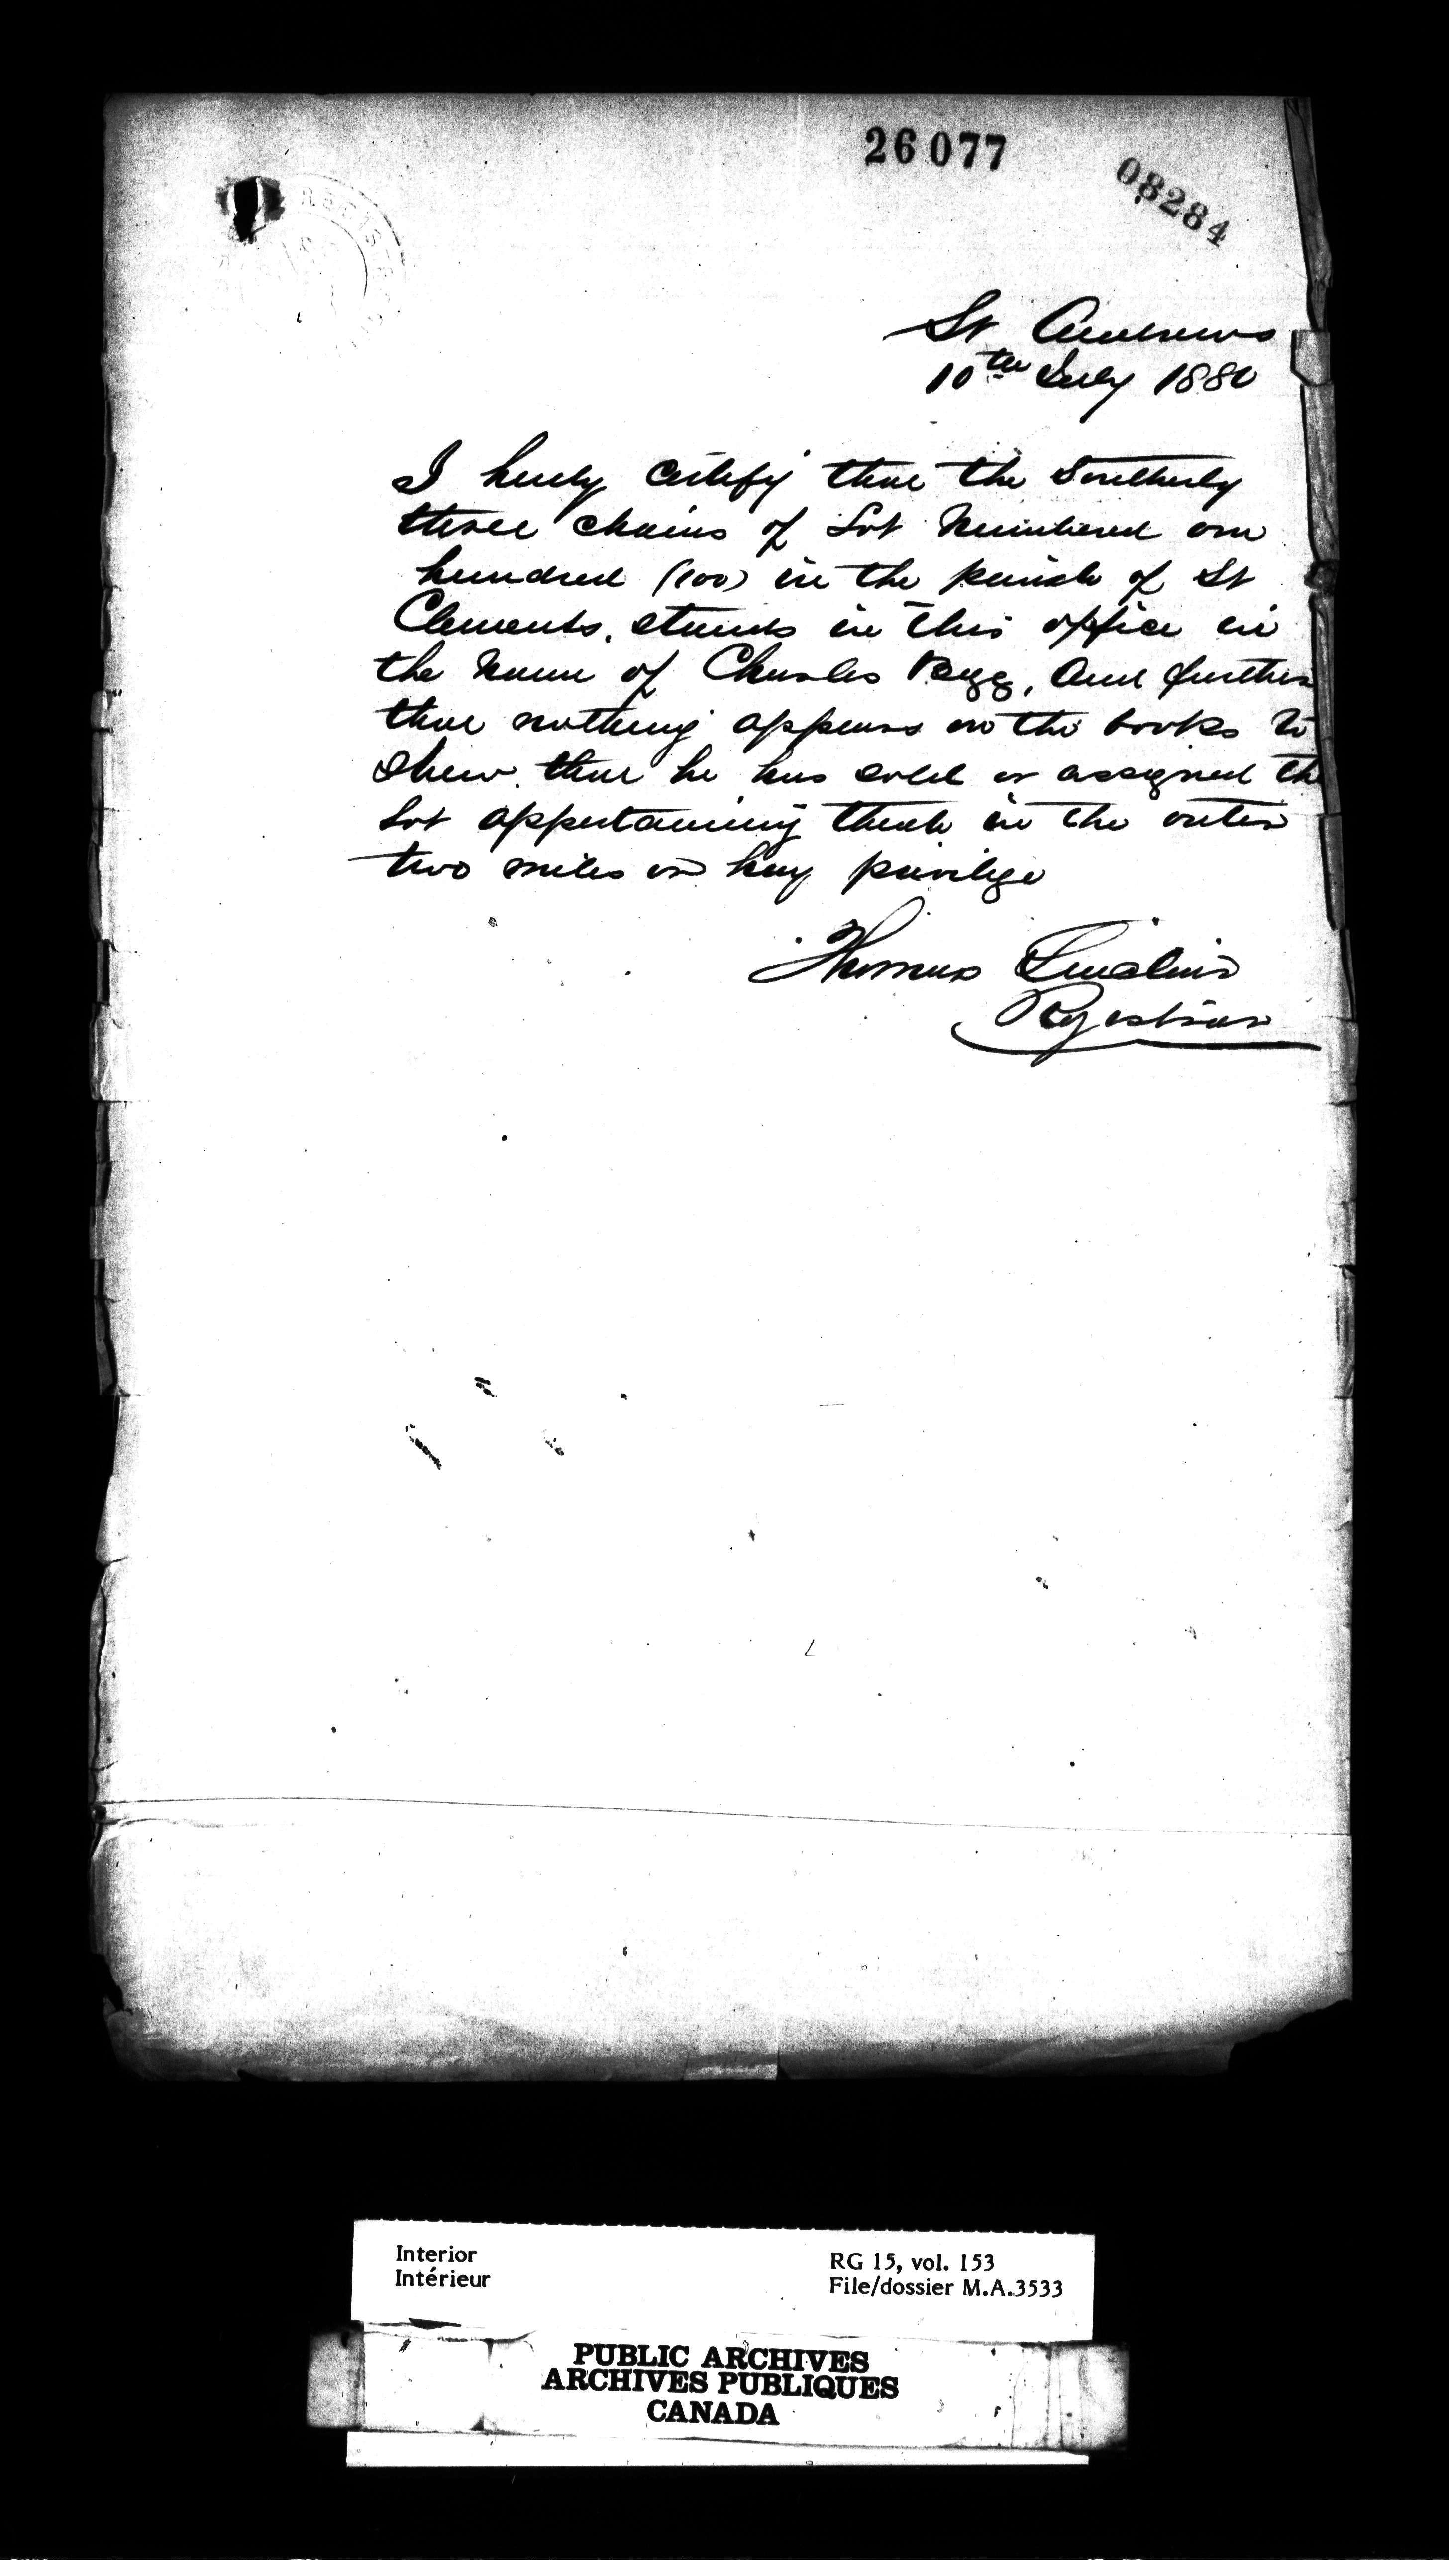 26077
08284
St Andrews
10th July 1880
I hereby certify that the Southerly
three chains of Lot Numbered one
hundred (100) in the parish of St
Clements, stands in this office in
the Name of Charles Begg, And further
that nothing appears on the books to
shew that he has sold or assigned the
Lot appertaining thereto in the outer
two miles or hay privilege
Thomas
Registrar
Interior
Intérieur
RG 15, vol. 153
File/dossier M.A.3533
PUBLIC ARCHIVES
ARCHIVES PUBLIQUES
CANADA